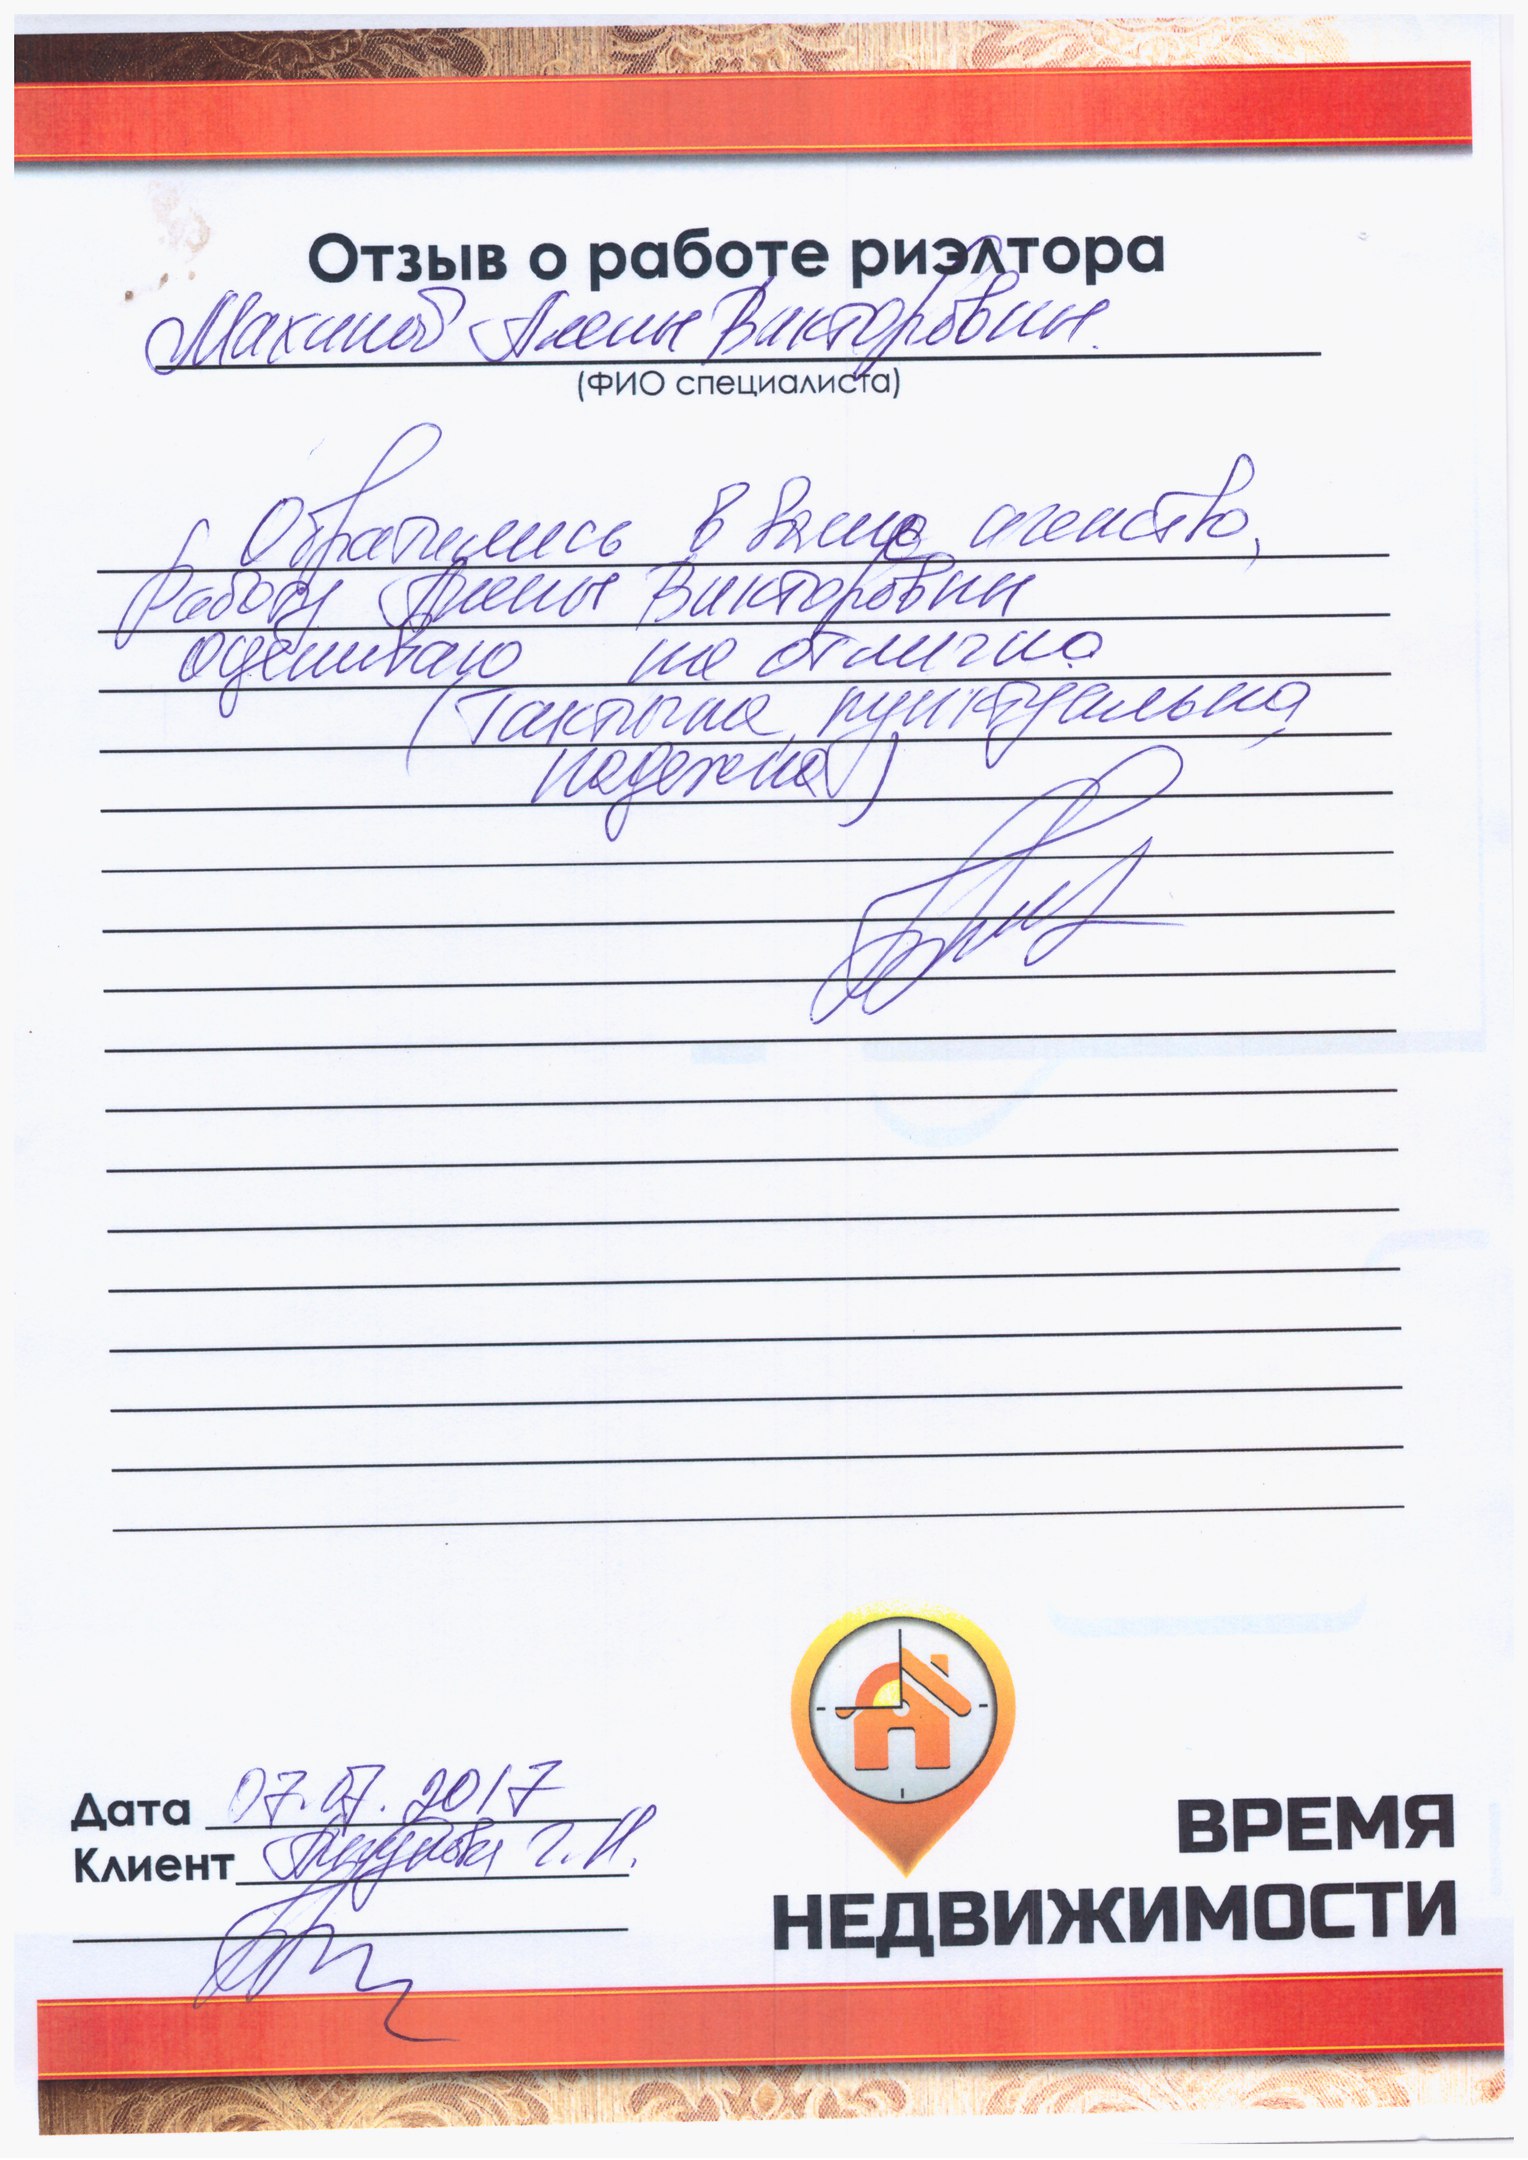 Отзыв о работе риэлтора
Махиной Алены Викторовны.
(ФИО специалиста)
Обратились в ваше агенство,
Работу Алены Викторовны
оцениваю на отлично
(Тактична, пунктуальна,
надежна)
Дата 07.07.2017
Клиент Г.И.
ВРЕМЯ
НЕДВИЖИМОСТИ